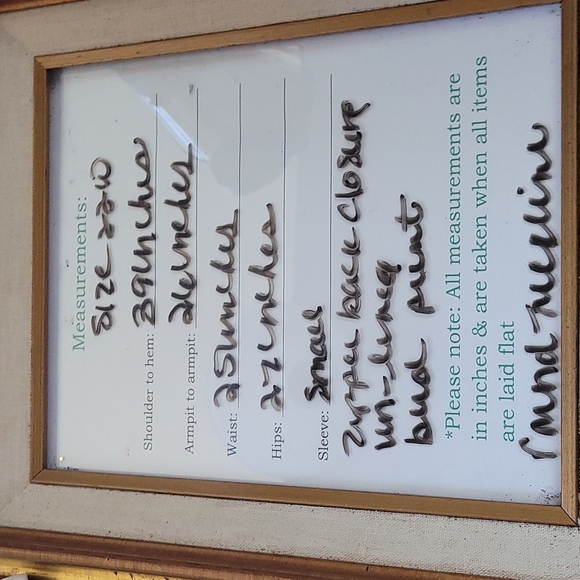 Measurements:
Size 22W
Shoulder to hem: 39 inches
Armpit to armpit: 26 inches
Waist: 25 inches
Hips: 27 inches
Sleeve: small
zipper back closure
un-lined
bud print
*Please note: All measurements are
in inches & are taken when all items
are laid flat
round neckline